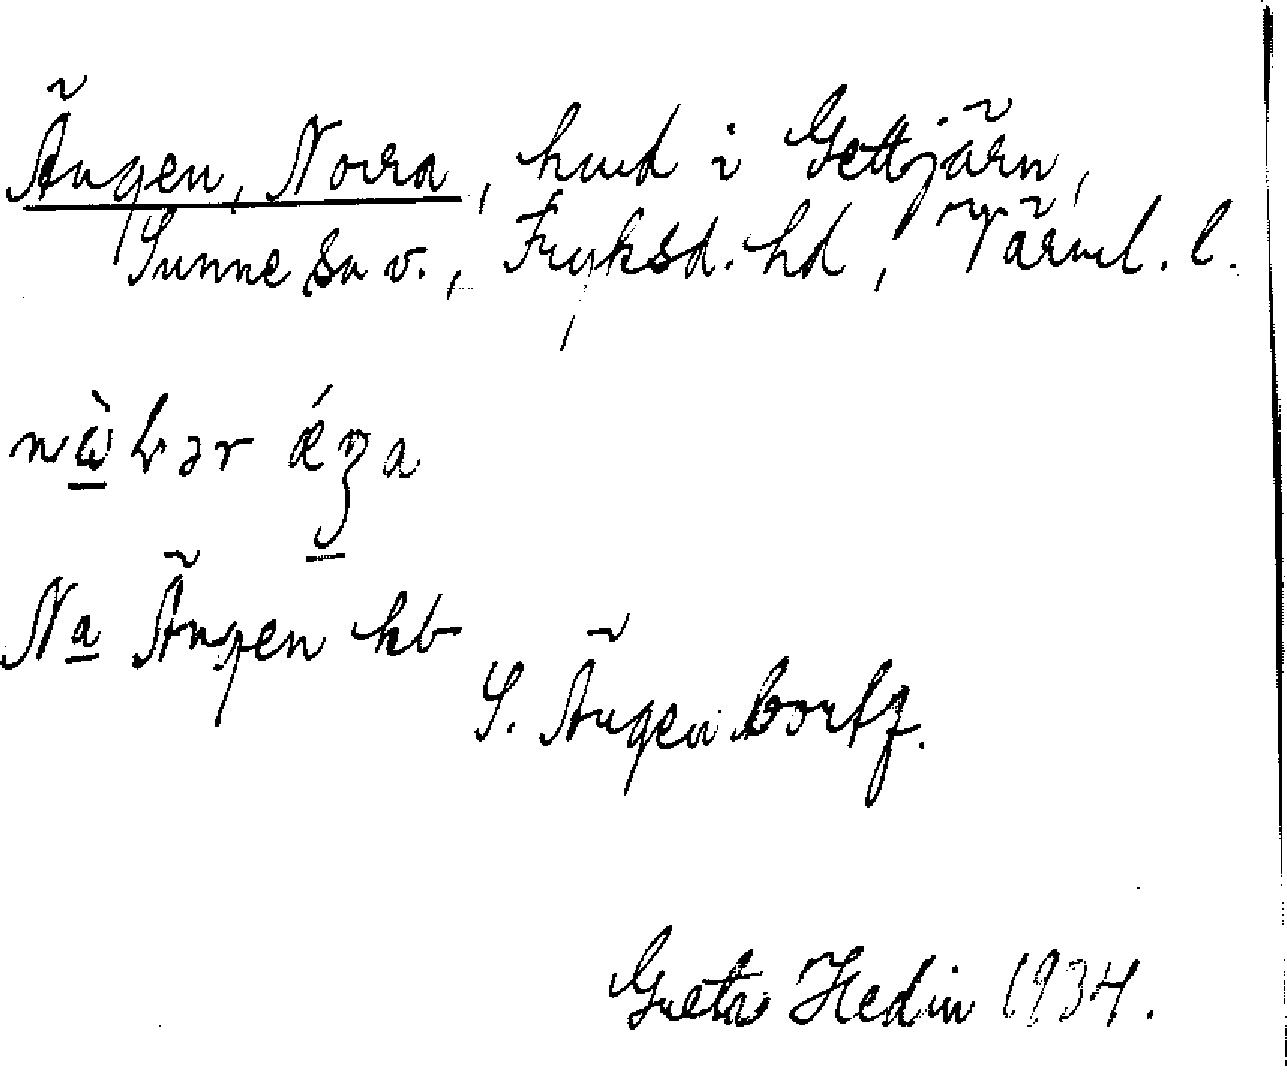 Ängen, Norra, hmd i Gettjärn,
Sunne sn v., Fryksd. hd, Värml. l.
Na Ängen hb
S. Ängen bortf.
Greta Hedin 1934.